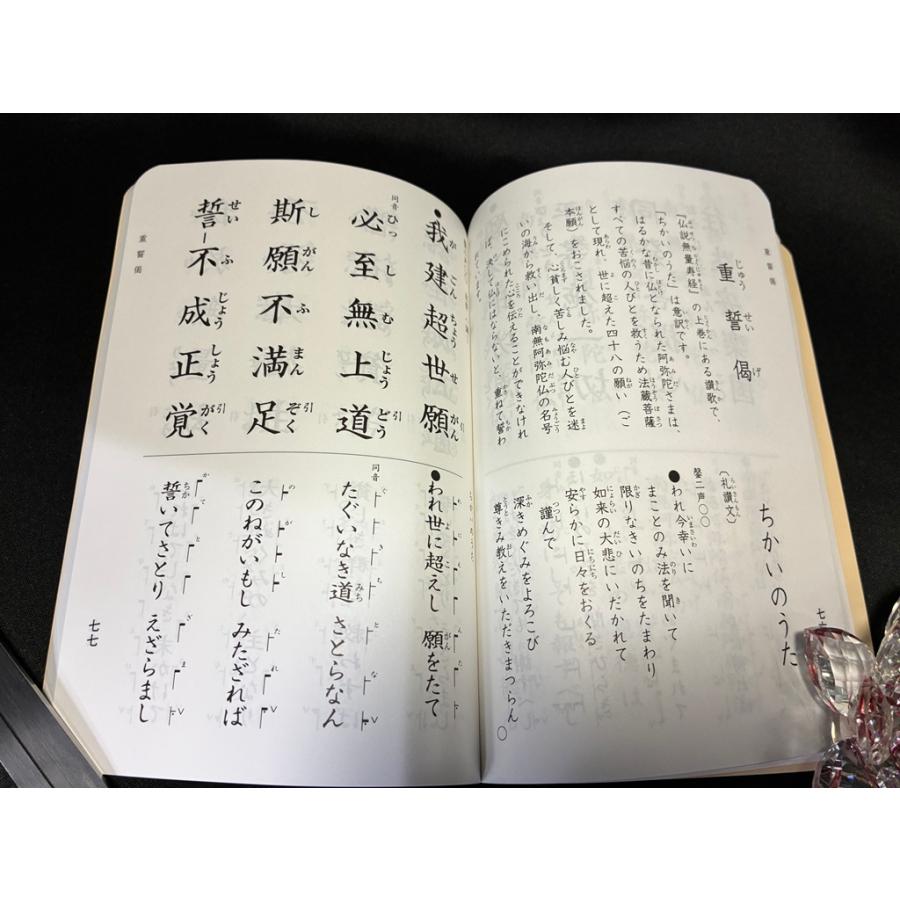 重誓偈
重誓偈
『仏説無量寿経』の上巻にある讃歌で、
「ちかいのうた」は意訳です。
はるかな昔に仏となられた阿弥陀さまは、
すべての苦悩の人びとを救うため法蔵菩薩
として現れ、世に超えた四十八の願い（ご
本願）をおこされました。
そして、心貧しく苦しみ悩む人びとを迷
いの海から救い出し、南無阿弥陀仏の名号
にこめられた心を伝えることができなけれ
ば、決して仏にはならないと、重ねて誓わ
ちかいのうた
〔礼讃文〕
磬二声〇〇
●われ今幸いに
まことのみ法を聞いて
限りなきいのちをたまわり
如来の大悲にいだかれて
安らかに日々をおくる
謹んで
深きめぐみをよろこび
尊きみ教えをいただきまつらん〇
●我建超世願
同音
必至無上道
斯願不満足
誓不成正覚
●われ世に超えし 願をたて
同音
たぐいなき道 さとらなん
このねがいもし みたざれば
誓いてさとり えざらまし
重誓偈
七七